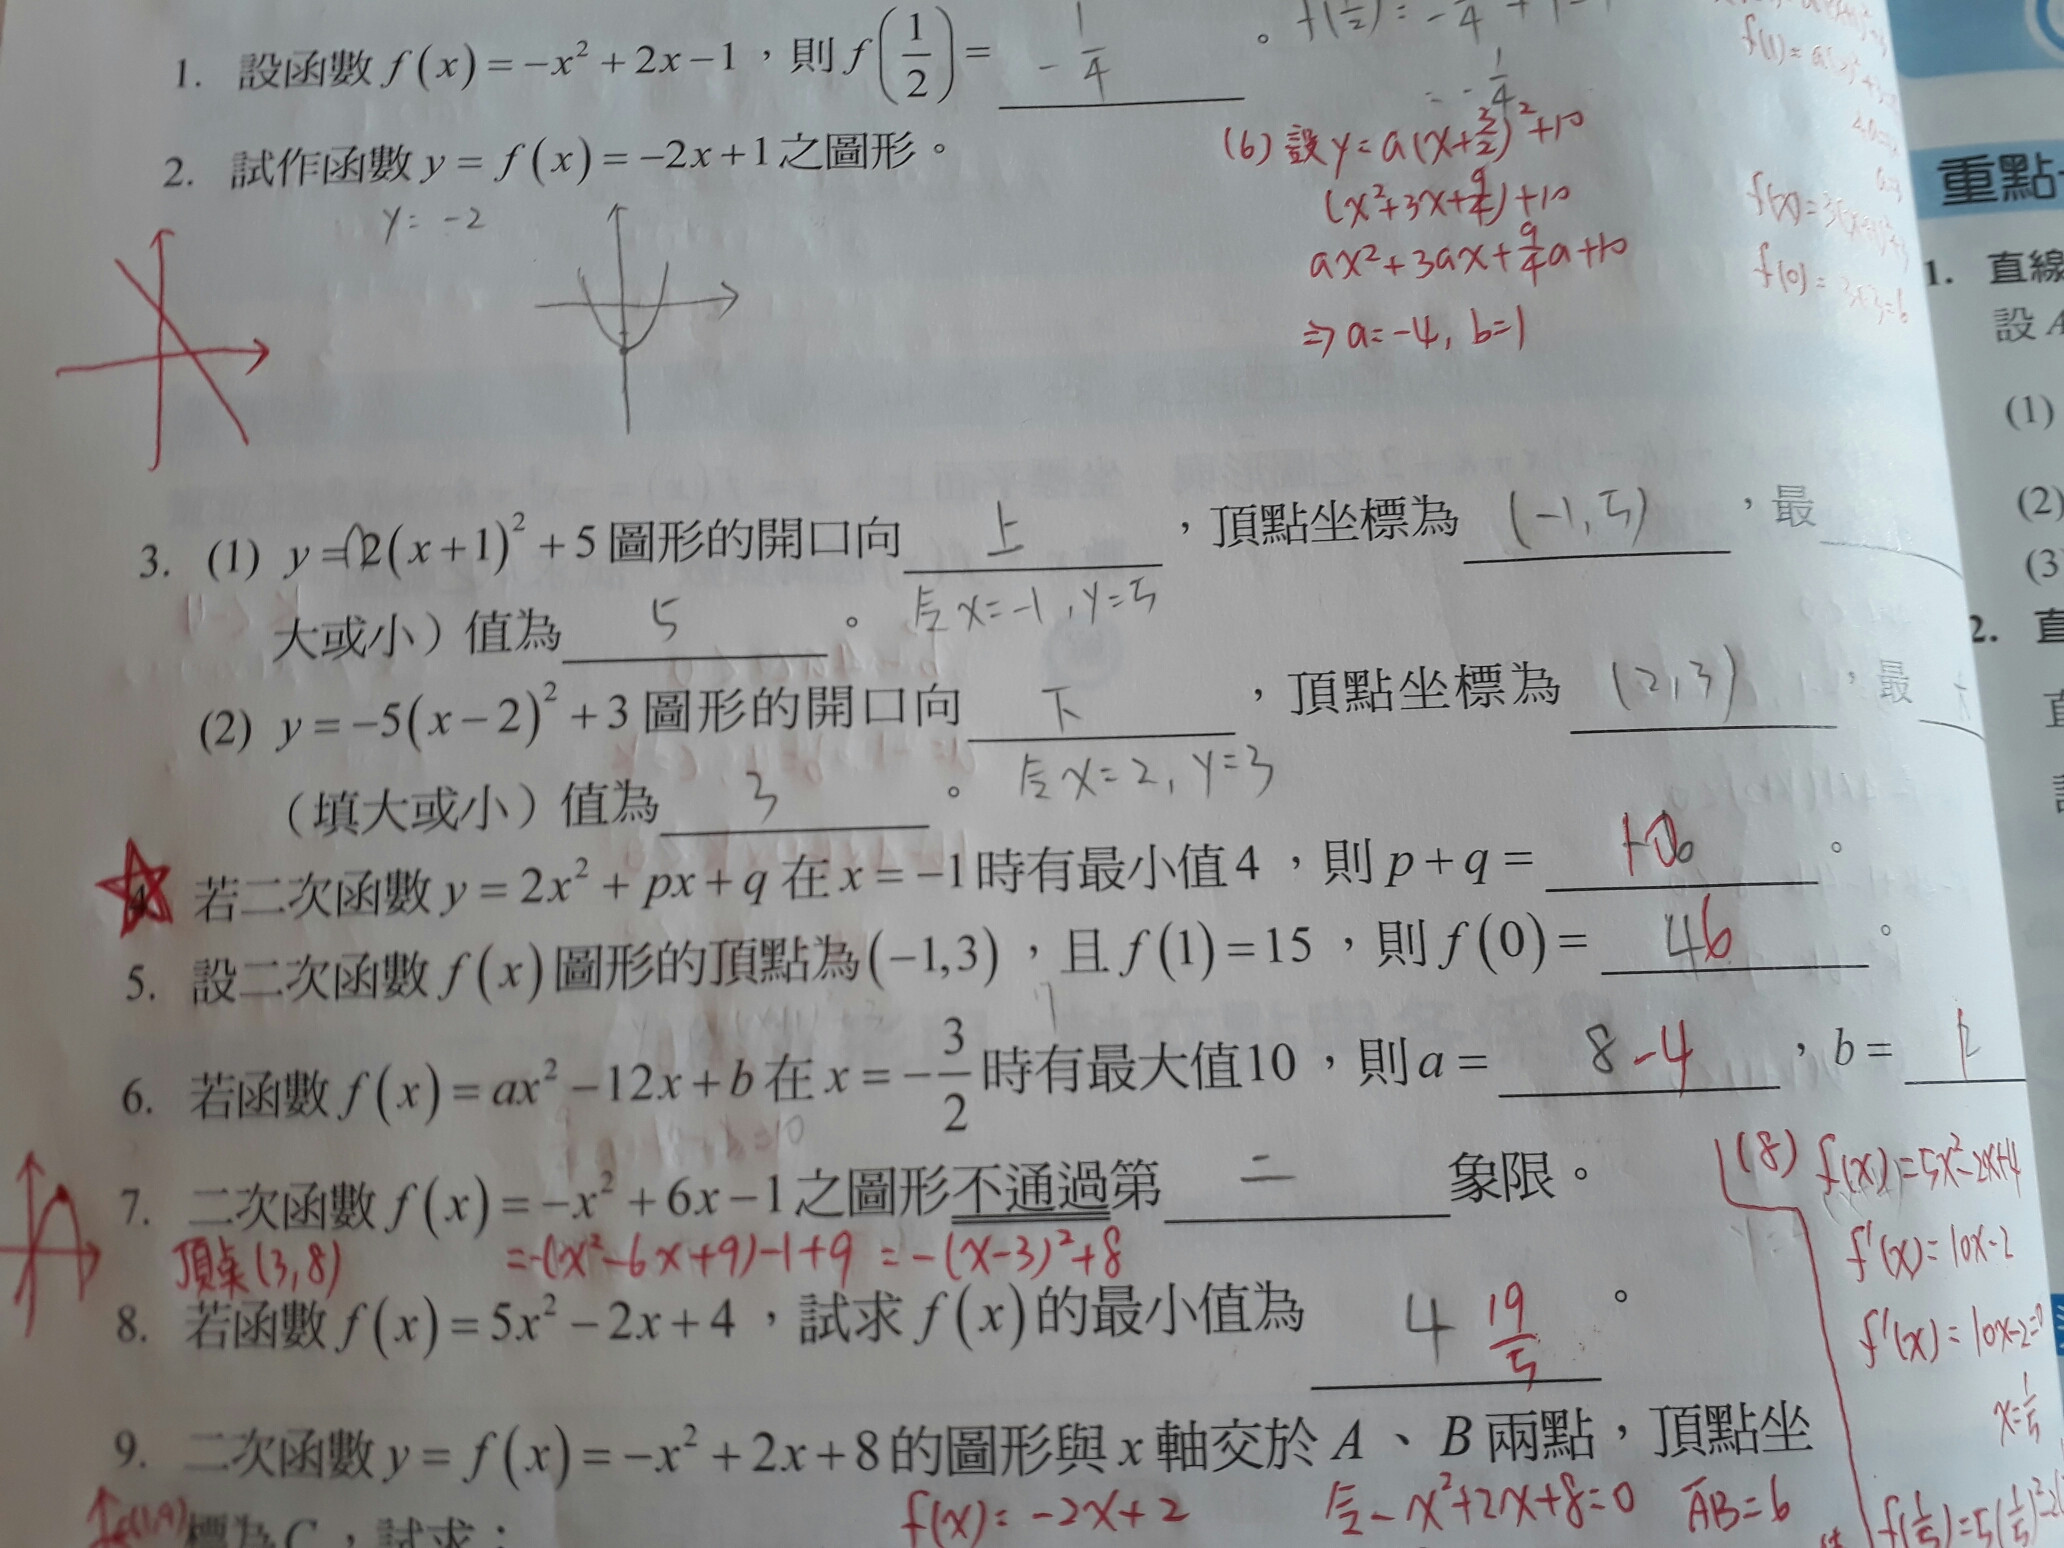 1. 設函數 f(x) = -x² + 2x - 1，則 f(1/2) = -1/4 。
= -1/4
2. 試作函數 y = f(x) = -2x + 1 之圖形。
y = -2
(6) 設 y = a(x+3/2)²+10
(x²+3x+9/4)+10
ax²+3ax+9/4a+10
⇒ a=-4, b=1
3. (1) y = 2(x+1)² + 5 圖形的開口向 上 ，頂點坐標為 (-1,5) ，最
大或小）值為 5 。 令 x=-1, y=5
(2) y = -5(x-2)² + 3 圖形的開口向 下 ，頂點坐標為 (2,3) ，最
（填大或小）值為 3 。 令 x=2, y=3
若二次函數 y = 2x² + px + q 在 x = -1 時有最小值 4 ，則 p + q = 。
5. 設二次函數 f(x) 圖形的頂點為 (-1,3) ，且 f(1) = 15 ，則 f(0) = 4 6 。
6. 若函數 f(x) = ax² - 12x + b 在 x = -3/2 時有最大值10 ，則 a = 8 -4 ，b = 1
7. 二次函數 f(x) = -x² + 6x - 1 之圖形不通過第 二 象限。
頂點 (3,8) =-(x²-6x+9)-1+9 = -(x-3)²+8
8. 若函數 f(x) = 5x² - 2x + 4 ，試求 f(x) 的最小值為 4 19/5 。
(8) f(x)=5x²-2x+4
f'(x)=10x-2
f'(x)=10x-2=0
x=1/5
9. 二次函數 y = f(x) = -x² + 2x + 8 的圖形與 x 軸交於 A 、 B 兩點，頂點坐
f(x)= -2x+2 令 -x²+2x+8=0 AB=6
標為 C ，試求：
重點
1. 直線
設 A
(1)
(2)
(3
2. 直